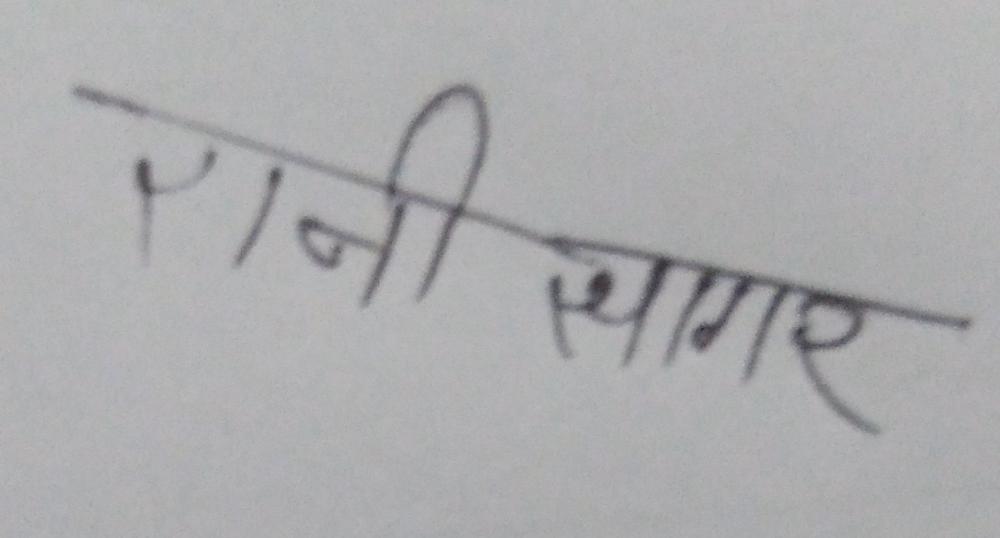 रानी स्थागर